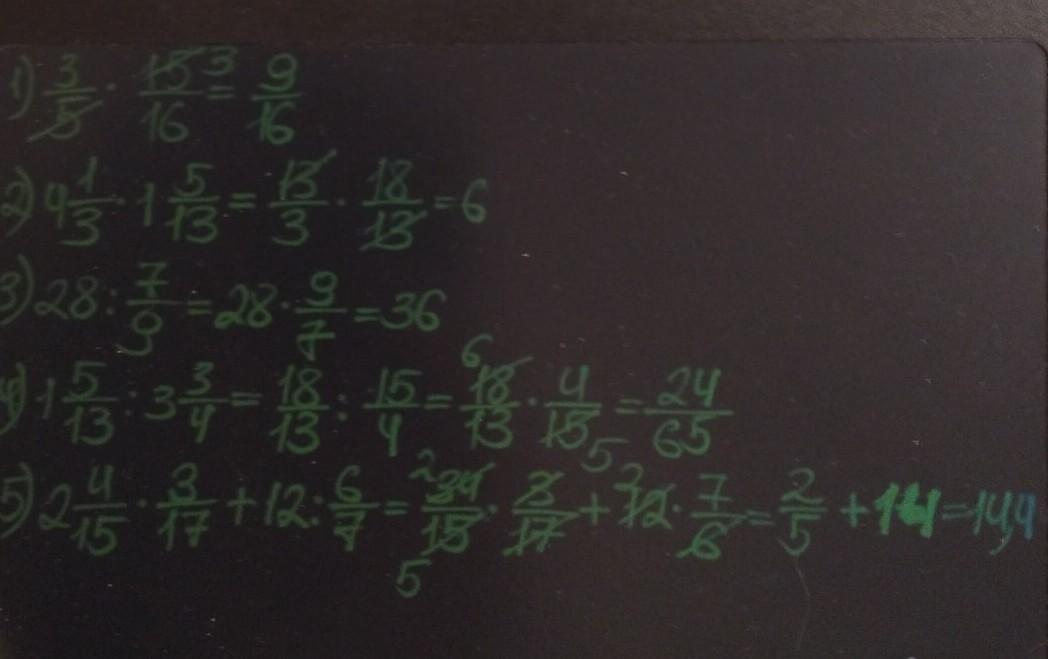 1) 3/5 · 15 3/16 = 9/16
2) 4 1/3 · 1 5/13 = 13/3 · 18/13 = 6
3) 28 : 7/9 = 28 · 9/7 = 36
4) 1 5/13 : 3 3/4 = 18/13 : 15/4 = 6 18/13 · 4/15 5 = 24/65
5) 2 4/15 · 3/17 + 12 : 6/7 = 2 34/15 5 · 3/17 + 2 12 · 7/6 = 2/5 + 14 = 14,4